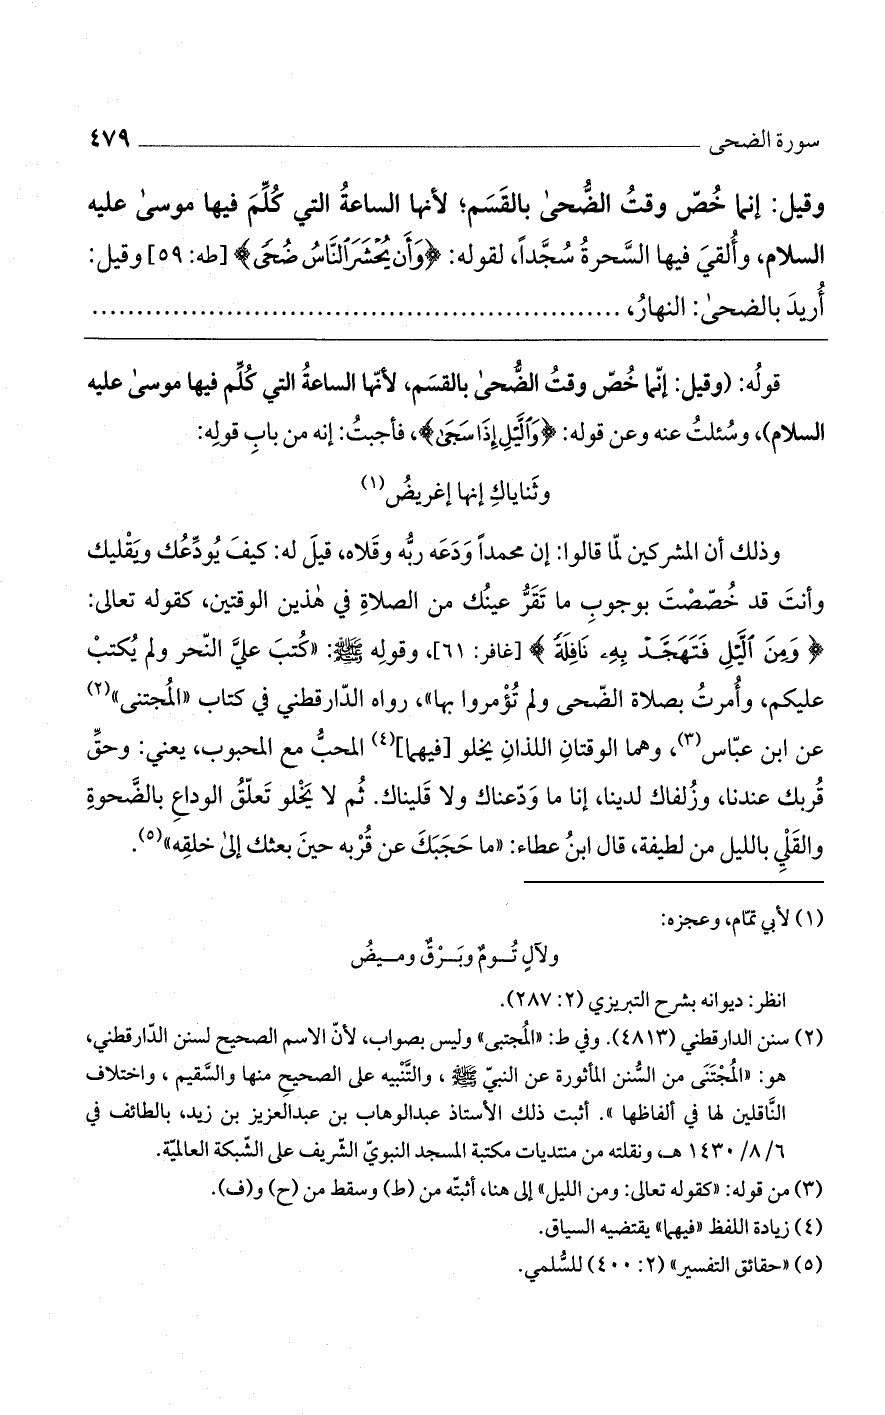 سورة الضحى ٤٧٩
وقيل: إنما خُصّ وقتُ الضُّحىٰ بالقَسَم؛ لأنها الساعةُ التي كُلِّمَ فيها موسىٰ عليه
السلام، وأُلقيَ فيها السَّحرةُ سُجَّداً، لقوله: ﴿وَأَن يُحْشَرَ ٱلنَّاسُ ضُحًى﴾ [طه: ٥٩] وقيل:
أُريدَ بالضحىٰ: النهارُ، ............................................................
قولُه: (وقيل: إنّما خُصّ وقتُ الضُّحىٰ بالقسَم، لأنّها الساعةُ التي كُلِّم فيها موسىٰ عليه
السلام)، وسُئلتُ عنه وعن قوله: ﴿وَٱلَّيْلِ إِذَا سَجَىٰ﴾، فأجبتُ: إنه من بابِ قولِه:
وثَناياكِ إنها إغريضُ(١)
وذلك أن المشركين لمّا قالوا: إن محمداً وَدَعَه ربُّه وقَلاه، قيلَ له: كيفَ يُودِّعُك ويَقْليك
وأنتَ قد خُصّصْتَ بوجوبِ ما تَقَرُّ عينُك من الصلاةِ في هٰذين الوقتين، كقوله تعالى:
﴿ وَمِنَ ٱلَّيْلِ فَتَهَجَّدْ بِهِۦ نَافِلَةً ﴾ [غافر: ٦١]، وقولِه ﷺ: «كُتبَ عليَّ النّحر ولم يُكتبْ
عليكم، وأُمرتُ بصلاة الضّحى ولم تُؤْمروا بها»، رواه الدّارقطني في كتاب «المُجتنى»(٢)
عن ابن عبّاس(٣)، وهما الوقتانِ اللذانِ يخلو [فيهما](٤) المحبُّ مع المحبوب، يعني: وحقِّ
قُربك عندنا، وزُلفاك لدينا، إنا ما وَدّعناك ولا قَليناك. ثُم لا يَخْلو تَعلّقُ الوداعِ بالضَّحوةِ
والقَلْيِ بالليل من لطيفة، قال ابنُ عطاء: «ما حَجَبَكَ عن قُرْبه حينَ بعثك إلىٰ خلقِه»(٥).
(١) لأبي تمّام، وعجزه:
ولآلٍ تُـومٌ وبَـرْقٌ ومـيضُ
انظر: ديوانه بشرح التبريزي (٢: ٢٨٧).
(٢) سنن الدارقطني (٤٨١٣). وفي ط: «المُجتبى» وليس بصواب، لأنّ الاسم الصحيح لسنن الدّارقطني،
هو: «المُجْتَنَى من السُّنن المأثورة عن النبيّ ﷺ ، والتَّنْبيه على الصحيحِ منها والسَّقيم ، واختلاف
النَّاقلين لها في ألفاظها ». أثبت ذلك الأستاذ عبدالوهاب بن عبدالعزيز بن زيد، بالطائف في
٦/ ٨/ ١٤٣٠ هـ، ونقلته من منتديات مكتبة المسجد النبويّ الشّريف على الشّبكة العالميّة.
(٣) من قوله: «كقوله تعالى: ومن الليل» إلى هنا، أثبتّه من (ط) وسقط من (ح) و(ف).
(٤) زيادة اللفظ «فيهما» يقتضيه السياق.
(٥) «حقائق التفسير» (٢: ٤٠٠) للسُّلمي.